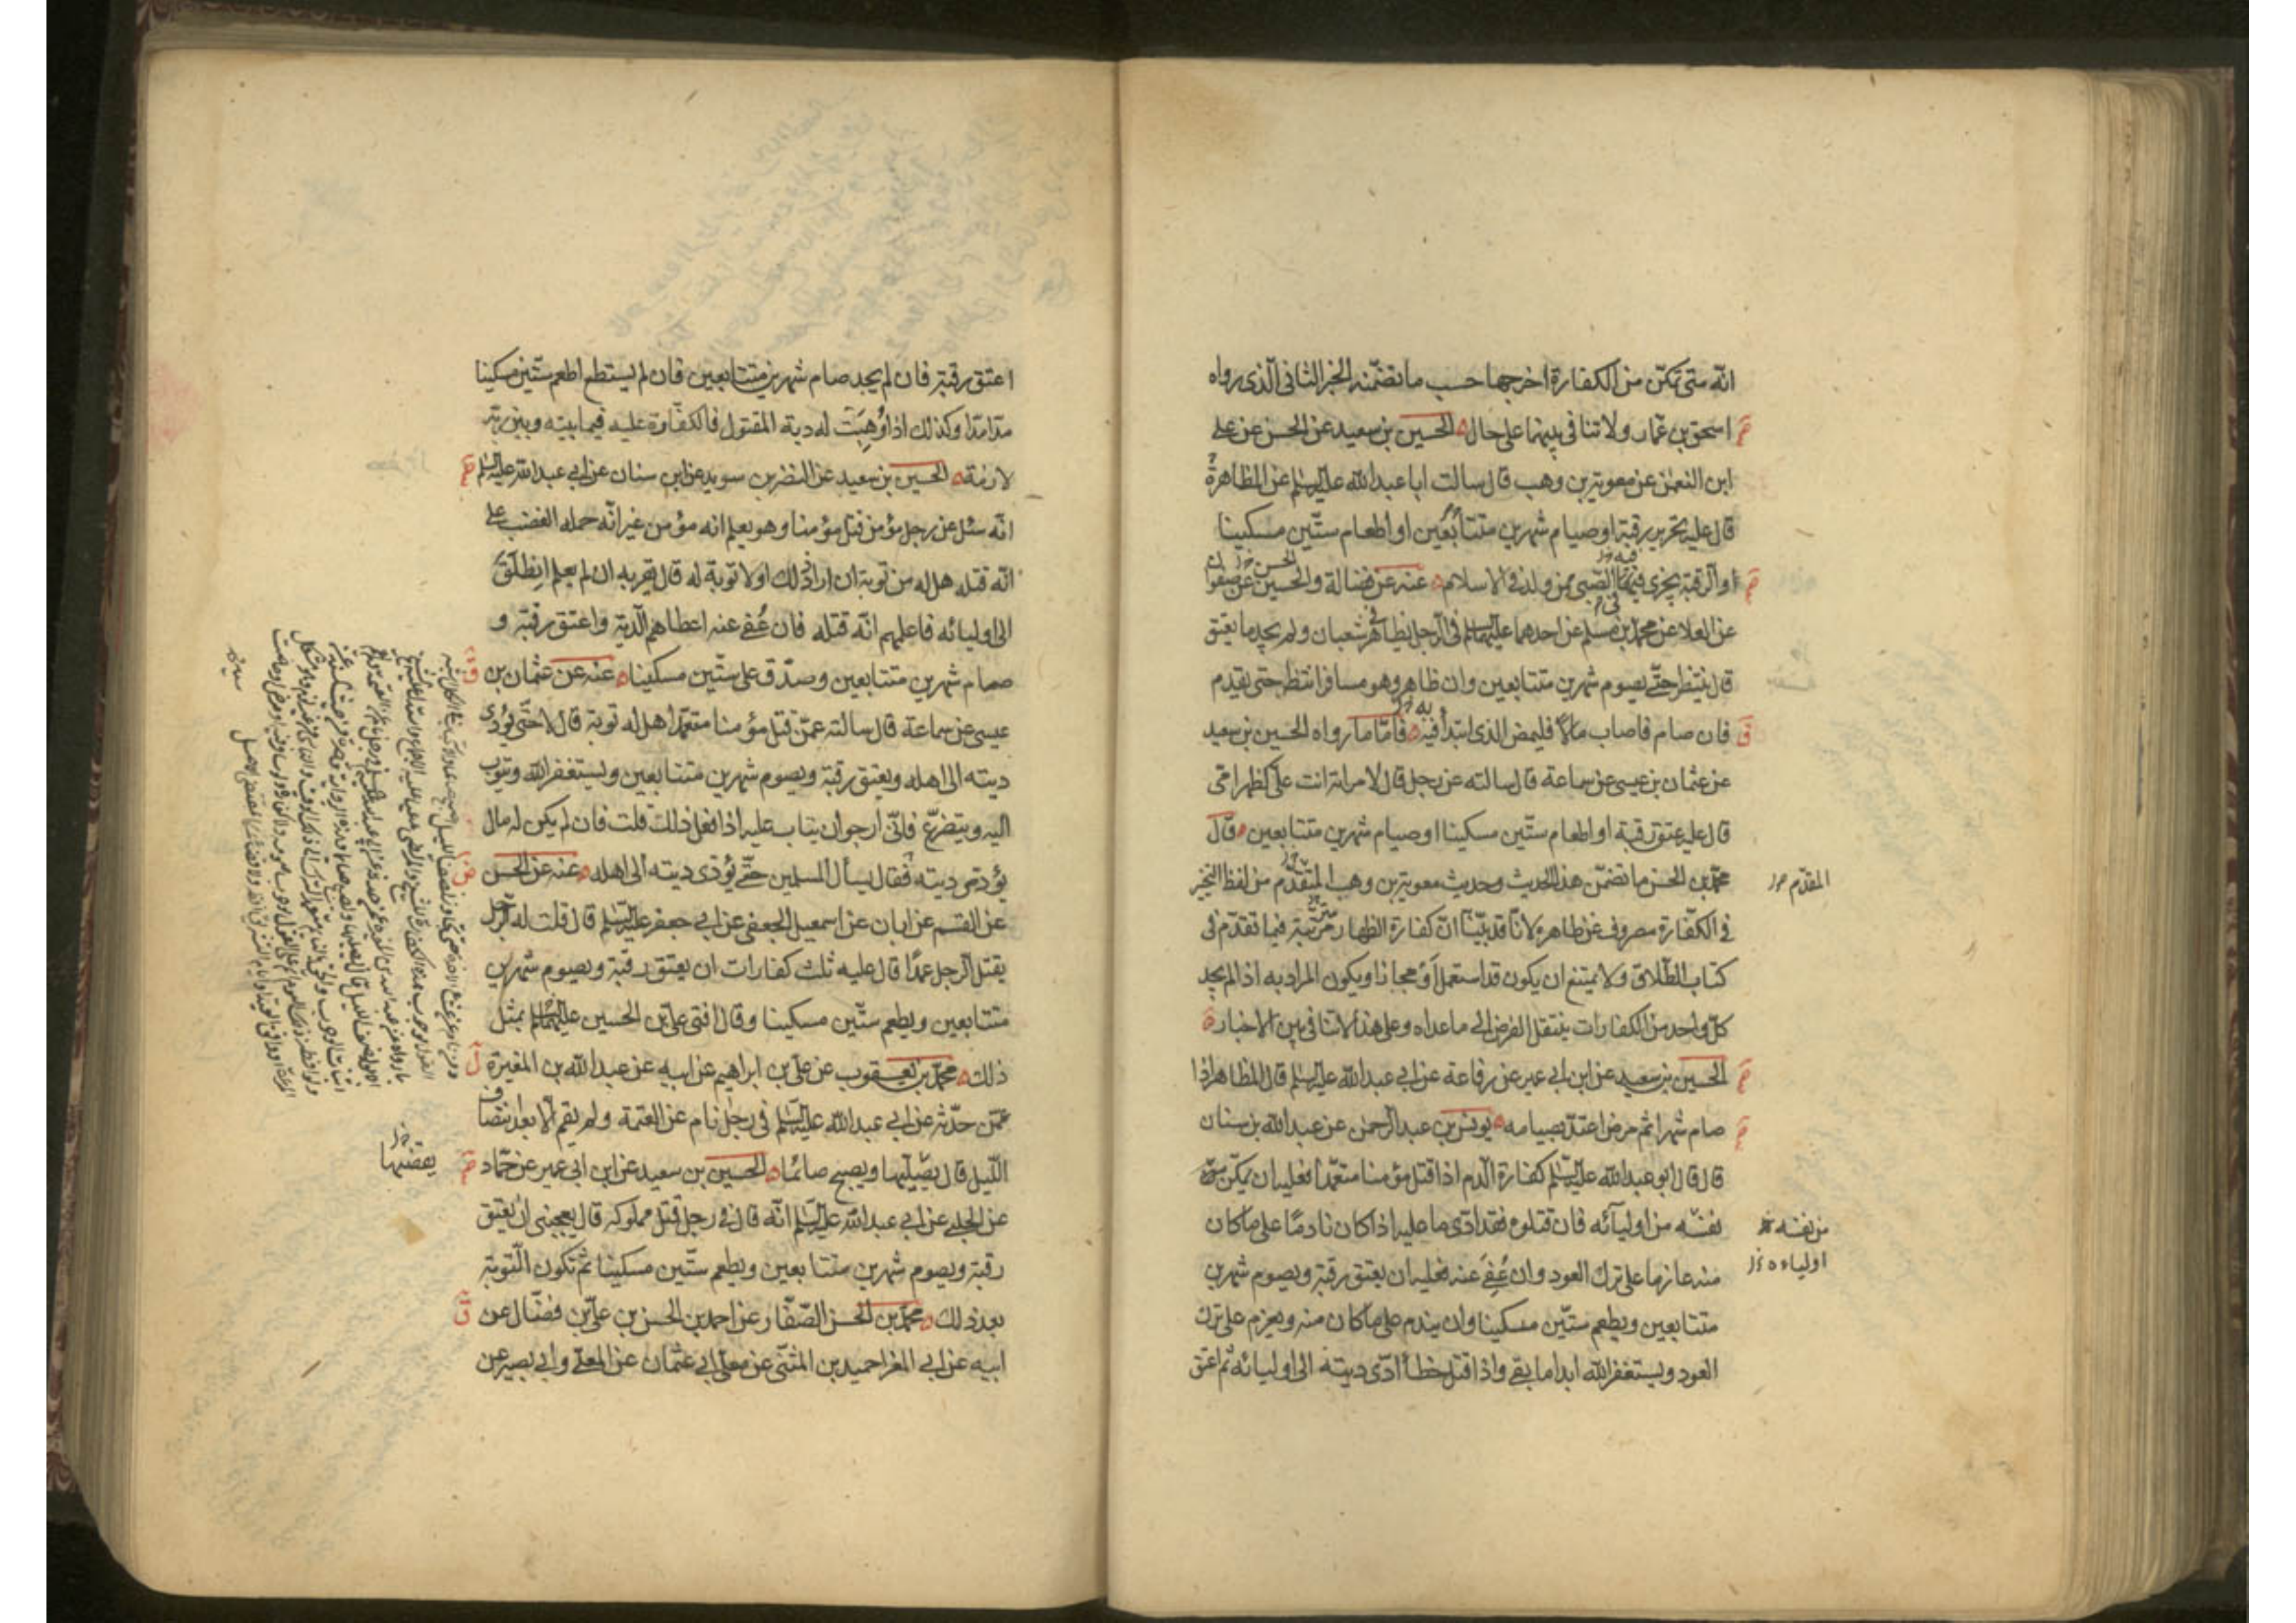 انّه متى تمكّن من الكفارة اخرجها حسب ما تضمّنه الخبر الثانى الّذى رواه
اسحق بن عمّار ولا تنافى بينهما على حال الحسين بن سعيد عن الحسن عن على
ابن النعمٰن عن معوية بن وهب قال سالت ابا عبد الله عليه السلم عن المظاهرة
قال عليه تحرير رقبة او صيام شهرين متتابعين او اطعام ستّين مسكينا
والرقبة يجزى فيها الصّبى ممن ولد فى الاسلام عنه عن فضالة والحسين عن صفوان
عن العلا عن محمّد بن مسلم عن احدهما عليهما السلم فى الرّجل يظاهر فى شعبان ولم يجد ما يعتق
قال ينتظر حتّى يصوم شهرين متتابعين وان ظاهر وهو مسافر انتظر حتى يقدم
فان صام فاصاب مالاً فليمض الذى ابتدا فيه فامّا ما رواه الحسين بن سعيد
عن عثمان بن عيسى عن سماعة قال سالته عن رجل قال لامراته انت علىّ كظهر امّى
قال عليه عتق رقبة او اطعام ستّين مسكينا او صيام شهرين متتابعين قال
محمّد بن الحسن ما تضمّن هذا الحديث وحديث معوية بن وهب المتقدّم من لفظ التخيير
المقدّم
فى الكفّارة مصروف عن ظاهره لانّا قد بيّنّا انّ كفارة الظهار مرتّبة فيما تقدّم فى
كتاب الطّلاق ولا يمتنع ان يكون قد استعمل اَوْ مجازا ويكون المراد به اذا لم يجد
كلّ واحد من الكفارات ينتقل الفرض الى ما عداه وعلى هذا لا تنافى بين الاخبار
الحسين بن سعيد عن ابن ابى عمير عن رفاعة عن ابى عبد الله عليه السلم قال المظاهر اذا
صام شهرا ثم مرض اعتدّ بصيامه يونس بن عبد الرّحمن عن عبد الله بن سنان
قال قال ابو عبد الله عليه السلم كفارة الّدم اذا قتل مؤمنا متعمّدا فعليه ان يمكّن
نفسه من اوليآئه فان قتلوه فقد ادّى ما عليه اذا كان نادمًا على ما كان
من نفسه
اولياءه
منه عازما على ترك العود وان عُفِىَ عنه فعليه ان يعتق رقبة ويصوم شهرين
متتابعين ويطعم ستّين مسكينا وان يندم على ما كان منه ويعزم على ترك
العود ويستغفر الله ابدا ما بقى واذا قتل خطأ ادّى ديته الى اوليائه ثم اعتق
اعتق رقبة فان لم يجد صام شهرين متتابعين فان لم يستطع اطعم ستّين مسكينا
مدّا مدّا وكذلك اذا وُهِبَتْ له دية المقتول فالكفّارة عليه فيما بينه وبين ربّه
لازمة الحسين بن سعيد عن النضر بن سويد عن ابن سنان عن ابى عبد الله عليه السلم
انّه سئل عن رجل مؤمن قتل مؤمنا وهو يعلم انه مؤمن غير انّه حمله الغضب على
انّه قتله هل له من توبة ان اراد ذلك او لا توبة له قال يقر به ان لم يعلم انطلق
الى اوليائه فاعلمهم انّه قتله فان عُفى عنه اعطاهم الّدية واعتق رقبة و
صام شهرين متتابعين وصدّق على ستّين مسكينا عنه عن عثمان بن
عيسى عن سماعة قال سالته عمّن قتل مؤمنا متعمّدا هل له توبة قال لا حتّى يؤدّى
ديته الى اهله ويعتق رقبة ويصوم شهرين متتابعين ويستغفر الله ويتوب
اليه ويتضرّع فانّى ارجو ان يتاب عليه اذا فعل ذلك قلت فان لم يكن له مال
يؤدى ديته فقال يسأل المسلمين حتّى يؤدى ديته الى اهله عنه عن الحسن
عن القسم عن ابان عن اسمعيل الجعفى عن ابى جعفر عليه السلم قال قلت له الرّجل
يقتل الرجل عمدًا قال عليه ثلث كفارات ان يعتق رقبة ويصوم شهرين
متتابعين ويطعم ستّين مسكينا وقال افتى علىّ بن الحسين عليهما السلم بمثل
ذلك محمّد بن يعقوب عن علىّ بن ابراهيم عن ابيه عن عبد الله بن المغيرة
عمّن حدّثه عن ابى عبد الله عليه السلم فى رجل نام عن العتمة ولم يقم الّا بعد انتصاف
الّليل قال يصّليها ويصبح صائما الحسين بن سعيد عن ابن ابى عمير عن حمّاد
يقضيها
عن الحلبى عن ابى عبد الله عليه السلم انّه قال فى رجل قتل مملوكه قال يعجبنى ان يعتق
رقبة ويصوم شهرين متتابعين ويطعم ستّين مسكينا ثم تكون الّتوبة
بعد ذلك محمّد بن الحسن الصّفّار عن احمد بن الحسن بن علىّ بن فضّال عن
ابيه عن ابى المغرا حميد بن المثنّى عن معلّى ابى عثمان عن المعلّى وابى بصير عن